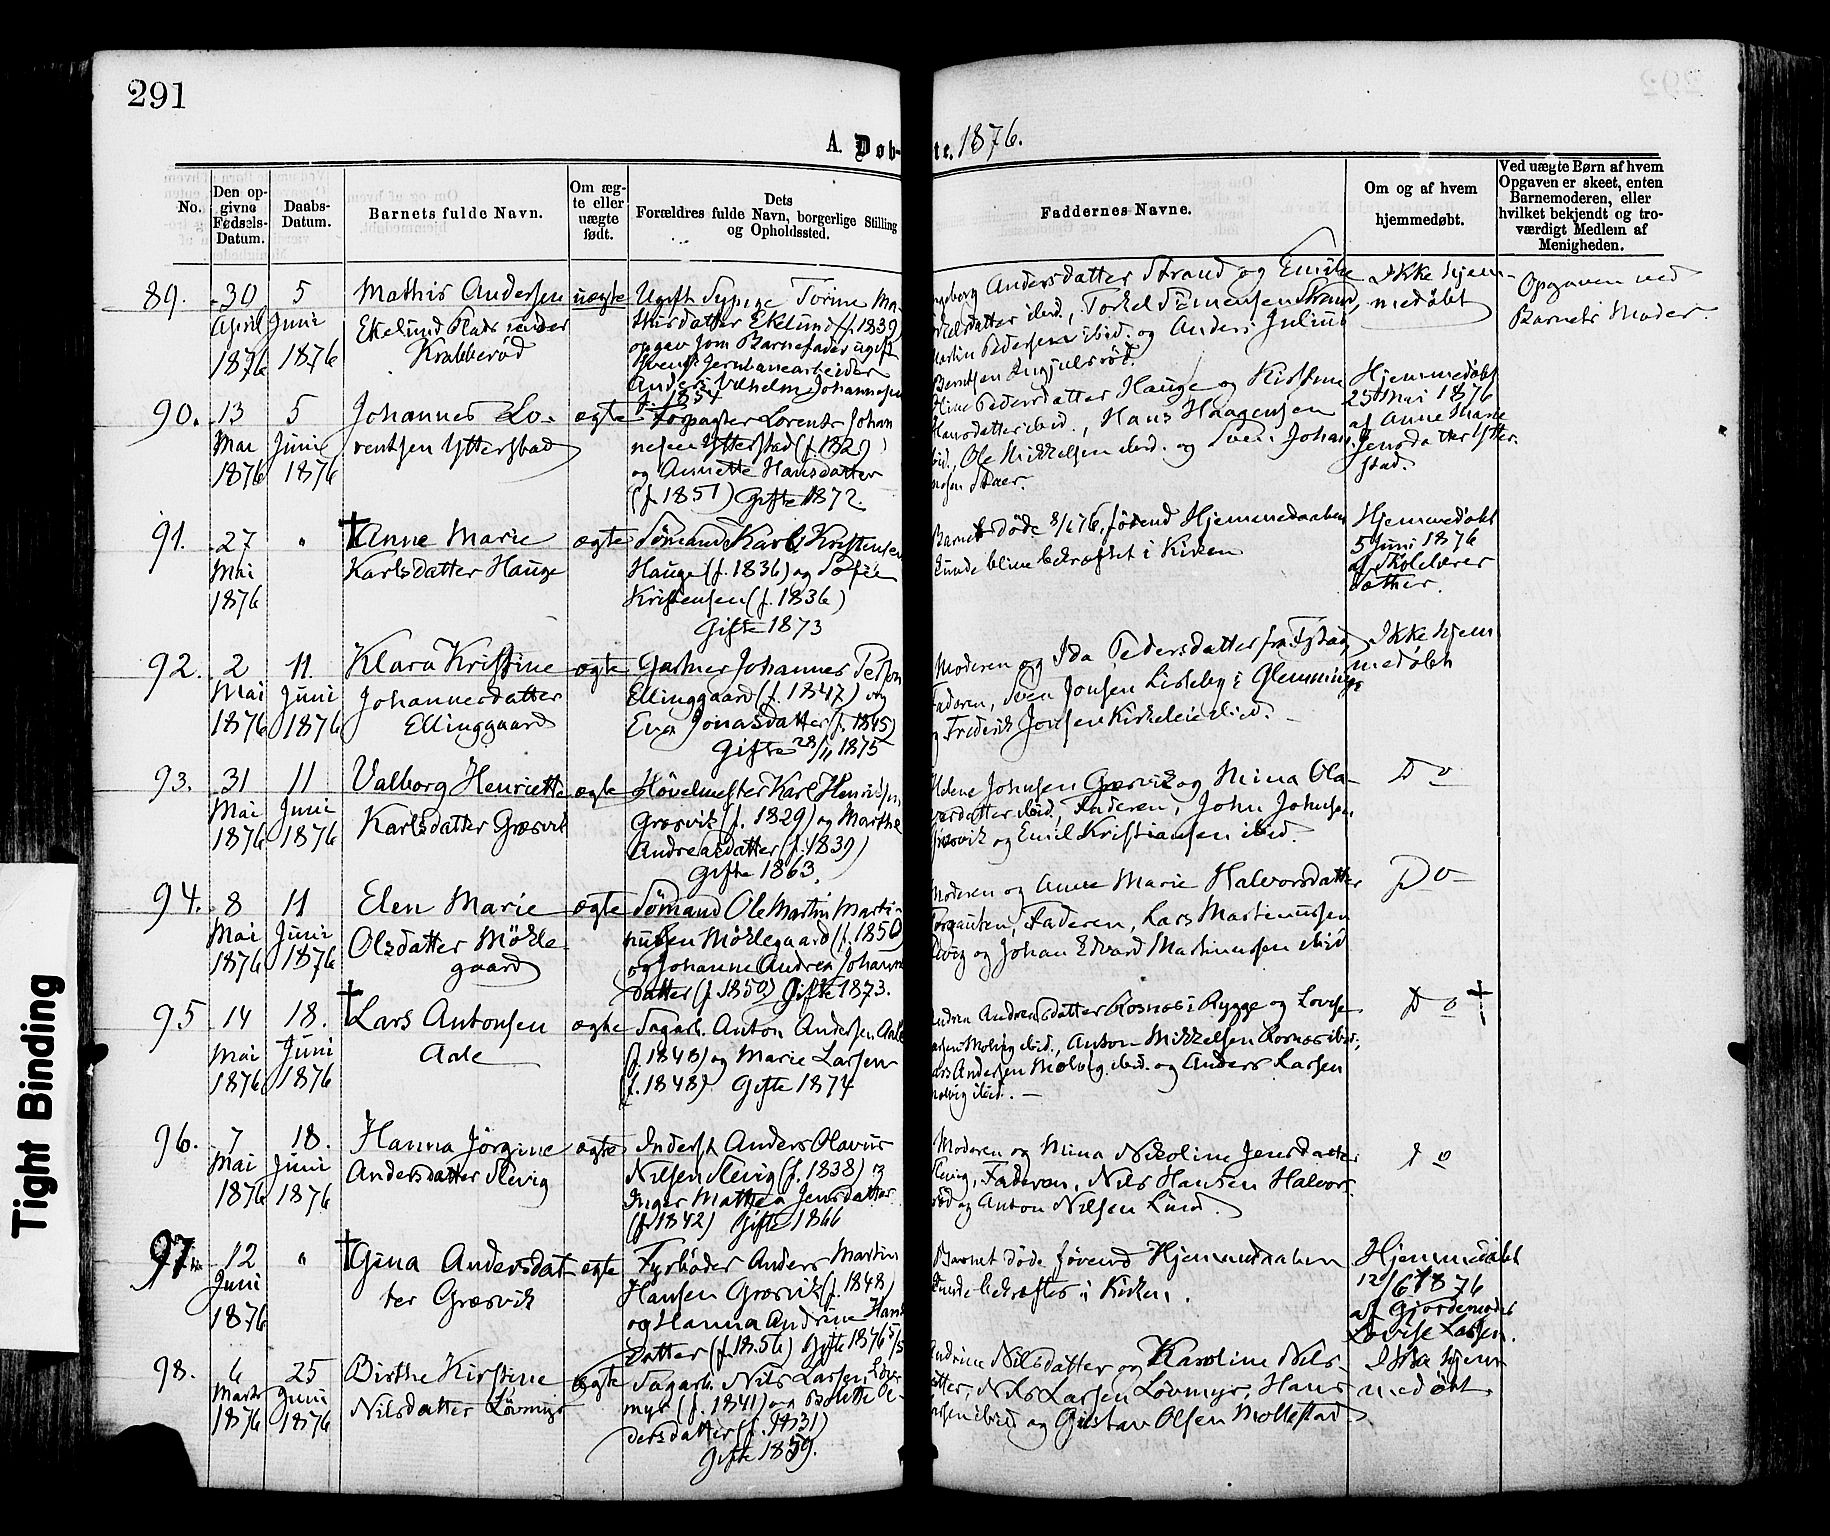 291
A. Døb-
te. 1876.
No.
Den op-
givne
Fødsels-
Datum.
Daabs-
Datum.
Barnets fulde Navn.
Om æg-
te eller
uægte
født.
Dets
Forældres fulde Navn, borgerlige Stilling
og Opholdssted.
Faddernes Navne.
Om og af hvem
hjemmedøbt.
Ved uægte Børn af hvem
Opgaven er skeet, enten
Barnemoderen, eller
hvilket bekjendt og tro-
værdigt Medlem af
Menigheden.
89.
30
April
1876
5
Juni
1876
Mathis Andersen
Ekelund Plads under
Krabberød
uægte
Ugift Sypige Torine Ma-
thisdatter Ekelund (f. 1839)
opgav som Barnefader ugift
Svensk Jernbanearbeider
Anders Vilhelm Johannesen
f. 1854
Andersdatter Strand og Emilie
ibid., Torkel Simensen Strand,
Martin Pedersen ibid. og Anders Julius
Berntsen
Ikke hjem-
medøbt
Opgaven ved
Barnets Moder
90.
13
Mai
1876
5
Juni
1876
Johannes Lo-
rentsen Ytterstad
ægte
Forpagter Lorents Johan
nesen Ytterstad (f. 1829)
og Annette Hansdatter
(f. 1851) Gifte 1872.
Pedersdatter Hauge og Kirstine
Hansdatter ibid., Hans Haagensen
ibid., Ole Mikkelsen ibid. og Sven Johan-
nesen Skaer.
Hjemmedøbt
25 Mai 1876
af Anne Marie
Jensdatter Ytter-
stad.
91.
27
Mai
1876
"
† Anne Marie
Karlsdatter Hauge
ægte
Sømand Karl Kristensen
Hauge (f. 1836) og Sofie
Kristensen (f. 1836)
Gifte 1873
Barnet døde 8/6 76, førend Hjemmedaaben
kunde blive bekræftet i Kirken
Hjemmedøbt
5 Juni 1876
af Skolelærer
Sæther.
92.
2
Mai
1876
11.
Juni
1876
Klara Kristine
Johannesdatter
Ellinggaard
ægte
Gartner Johannes Peterson
Ellinggaard (f. 1847) og
Eva Jonasdatter (f. 1845)
Gifte 28/11 1875
Moderen og Ida Pedersdatter fra
Faderen, Sven Jonsen Lisleby i Glemminge
og Frederik Jonsen Kirkeleie ibid.
Ikke hjem
medøbt
93.
31
Mai
1876
11
Juni
1876
Valborg Henriette
Karlsdatter Græsvik
ægte
Høvelmester Karl Henriksen
Græsvik (f. 1829) og Marthe
Andreasdatter (f. 1839)
Gifte 1863.
Helene Johnsen Græsvik og Mina Ola-
vesdatter ibid., Faderen, John Johnsen
Græsvik og Emil Kristiansen ibid.
Do
94.
8
Mai
1876
11
Juni
1876
Elen Marie
Olsdatter Mökle-
gaard
ægte
Sømand Ole Martin Marti-
nusen Möklegaard (f. 1850)
og Johanne Andrea Johanne
datter (f. 1850) Gifte 1873.
Moderen og Anne Marie Halvorsdatter
Torgauten, Faderen, Lars Martinussen
og Johan Edvard Martinusen ibid
Do
95
14
Mai
1876
18.
Juni
1876
† Lars Antonsen
Aale
ægte
Sagarb. Anton Andersen Aale
(f. 1848) og Marie Larsen
(f. 1848). Gifte 1874
Andrea Andreasdatter Rosnæs i Rygge og Lovise
Larsen Molvig ibid., Anton Mikkelsen Rosnæs ibid.,
Lars Andersen Molvig ibid. og Anders Larsen
Molvig ibid. —
Do †
96.
7
Mai
1876
18.
Juni
1876
Hanna Jørgine
Andersdatter Slevig
ægte
Inderst Anders Olavus
Nilsen Slevig (f. 1838) og
Inger Mathea Jensdatter
(f. 1842) Gifte 1866
Moderen og Mina Nikoline Jensdatter
Slevig, Faderen, Nils Hansen Halvors-
rød og Anton Nilsen Lund.
Do
97
12
Juni
1876
"
† Gina Andersdat-
ter Græsvik
ægte
Fyrbøder Anders Martin
Hansen Græsvik (f. 1848)
og Hanna Andrine Hans
datter (f. 1856) Gifte 1876 5/5
Barnet døde førend Hjemmedaaben
kunde bekræftes i Kirken.
Hjemmedøbt
12/6 1876
af Gjordemoder
Lovise Larsen.
98.
6
Marts
1876
25
Juni
1876
Birthe Kirstine
Nilsdatter Løvmyr
ægte
Sagarb. Nils Larsen Løv-
myr (f. 1841) og Bolette
dersdatter (f. 1831)
Gifte 1859.
Andrine Nilsdatter og Karoline Nils-
datter, Nils Larsen Løvmyr, Hans
Larsen ibid og Gustav Olsen Mollestad.
Ikke hjem-
medøbt
Tight Binding